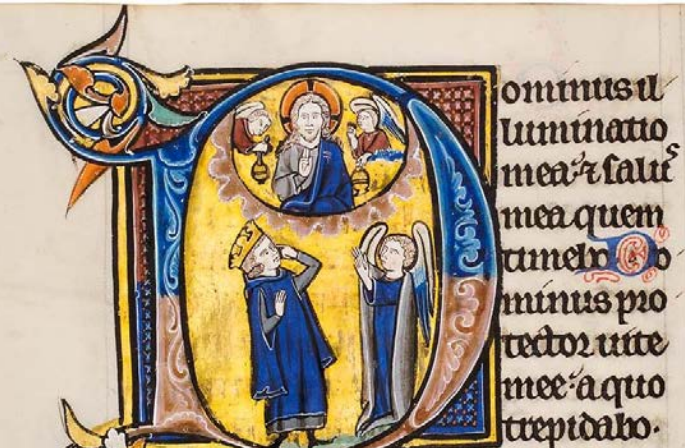 Dominus il
luminatio
mea· ⁊ saluˢ
mea quem
timebo Do
minus pro
tector uite
mee· a quo
trepidabo·